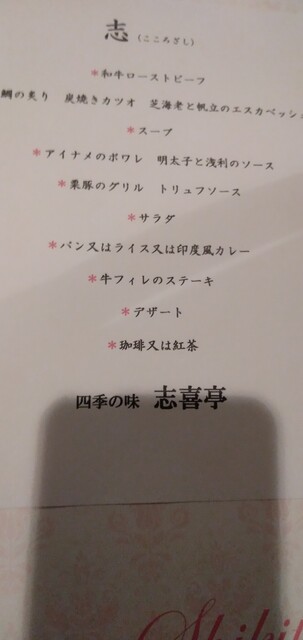 志 (こころざし)
*和牛ローストビーフ
鯛の炙り 炭焼きカツオ 芝海老と帆立のエスカベッシュ
*スープ
*アイナメのポワレ 明太子と浅利のソース
*栗豚のグリル トリュフソース
*サラダ
*パン又はライス又は印度風カレー
*牛フィレのステーキ
*デザート
*珈琲又は紅茶
四季の味 志喜亭